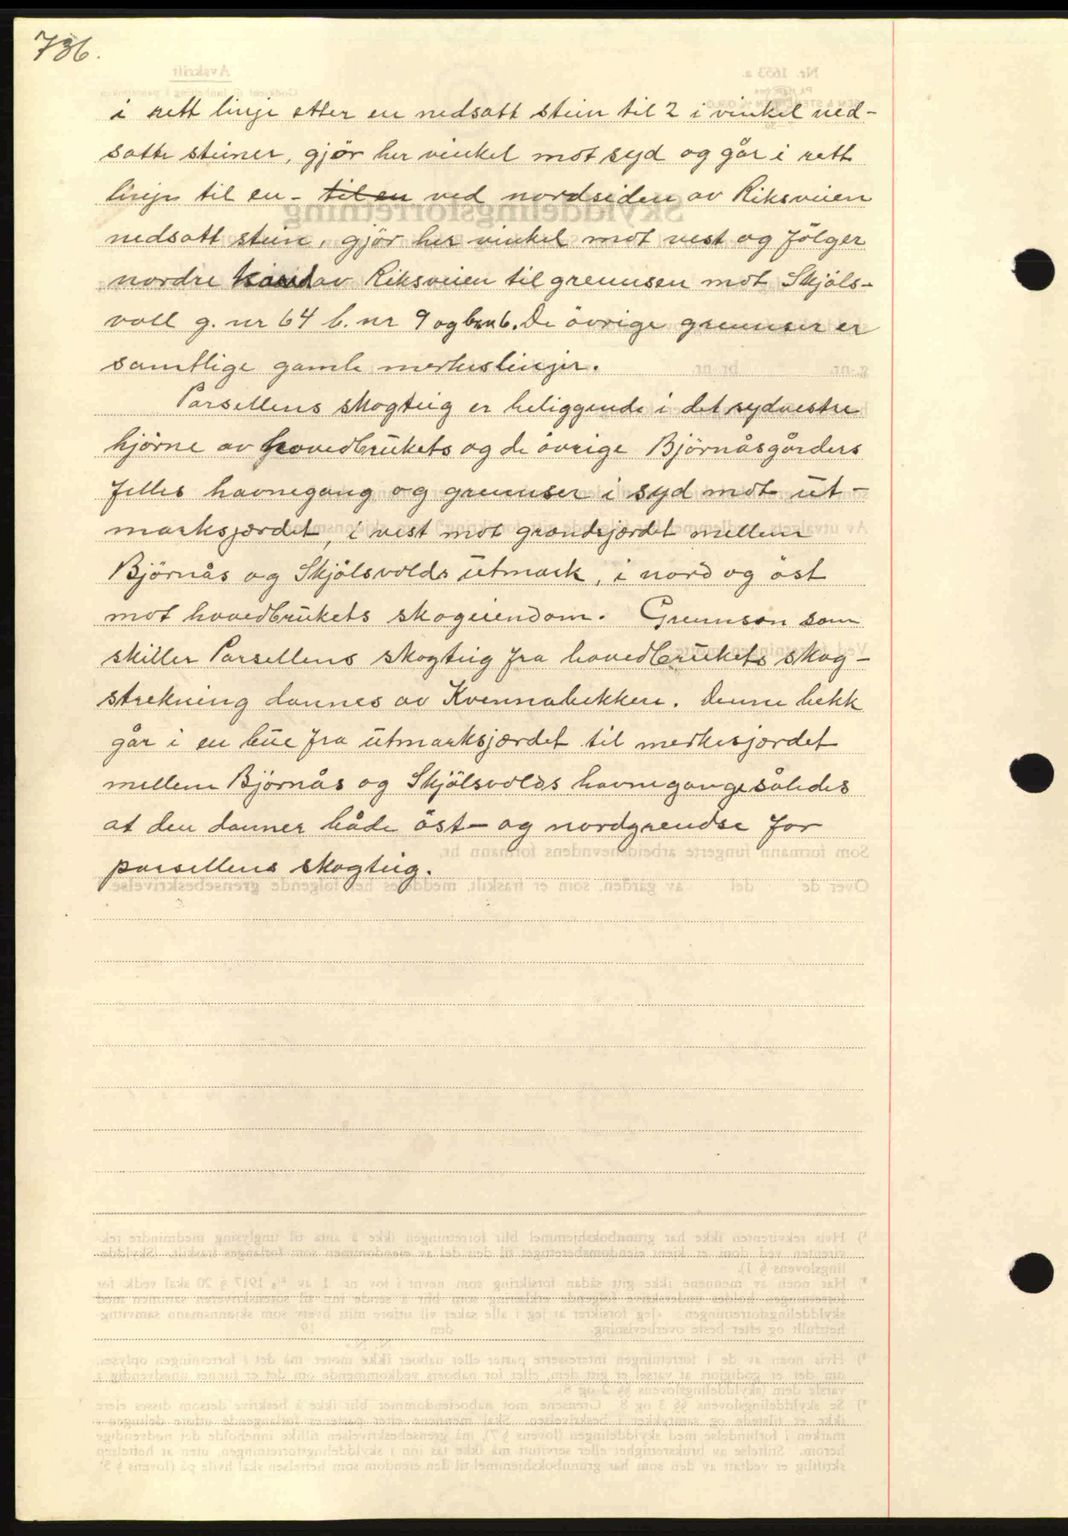 736.
i rett linje etter en nedsatt stein til 2 i vinkel ned-
satte steiner, gjör her vinkel mot syd og går i rett
linje til en - til en ved nordsiden av Riksveien
nedsatt stein, gjör her vinkel mot vest og fölger
nordre kant av Riksveien til grennsen mot Skjöls-
voll g. nr 64 b. nr 9 og bnr 6. De övrige grennser er
samtlige gamle merkeslinjer.
Parsellens skogteig er beliggende i det sydvestre
hjörne av hovedbrükets og de övrige Björnåsgårders
felles havnegang og grennser i syd mot üt-
marksjærdet, i vest mot grandsjærdet mellem
Björnås og Skjölsvolds ütmark, i nord og öst
mot hovedbrükets skogeiendom. Grennsen som
skiller Parsellens skogteig fra hovedbrükets skog-
strekning dannes av Kvennabekken. Denne bekk
går i en büe fra ütmarksjærdet til merkesjærdet
mellem Björnås og Skjölsvolds havnegange således
at den danner både öst- og nordgrendse for
parsellens skogteig.